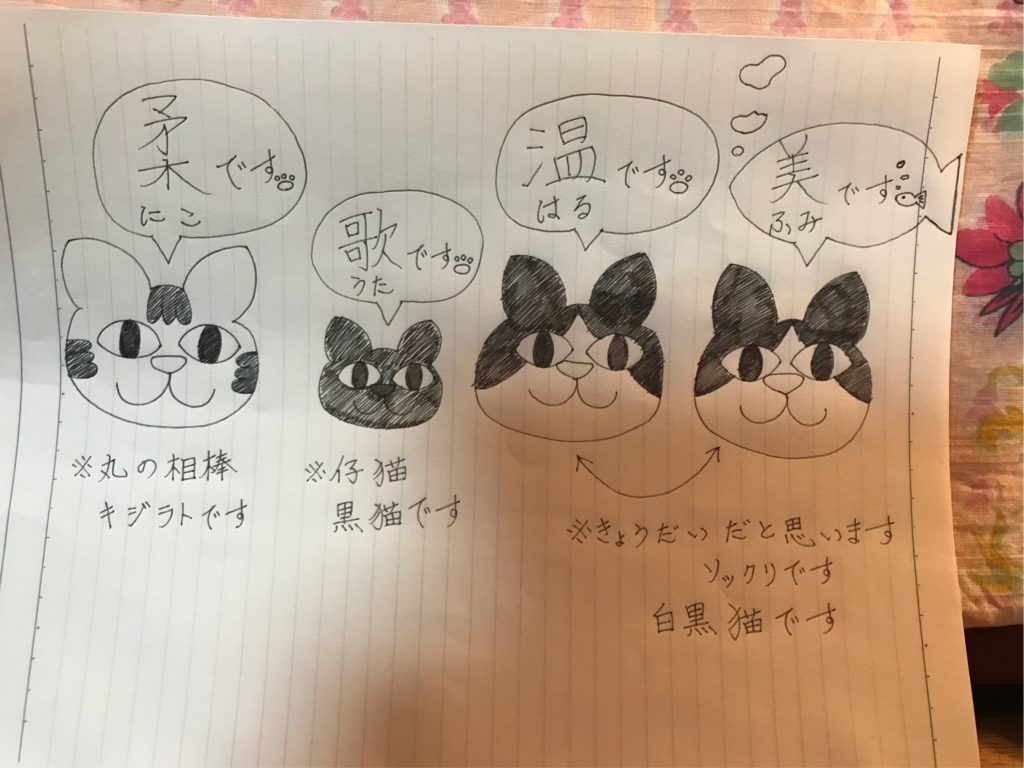 柔です
にこ
歌です
うた
温です
はる
美です
ふみ
※丸の相棒
キジラトです
※仔猫
黒猫です
※きょうだいだと思います
ソックリです
白黒猫です